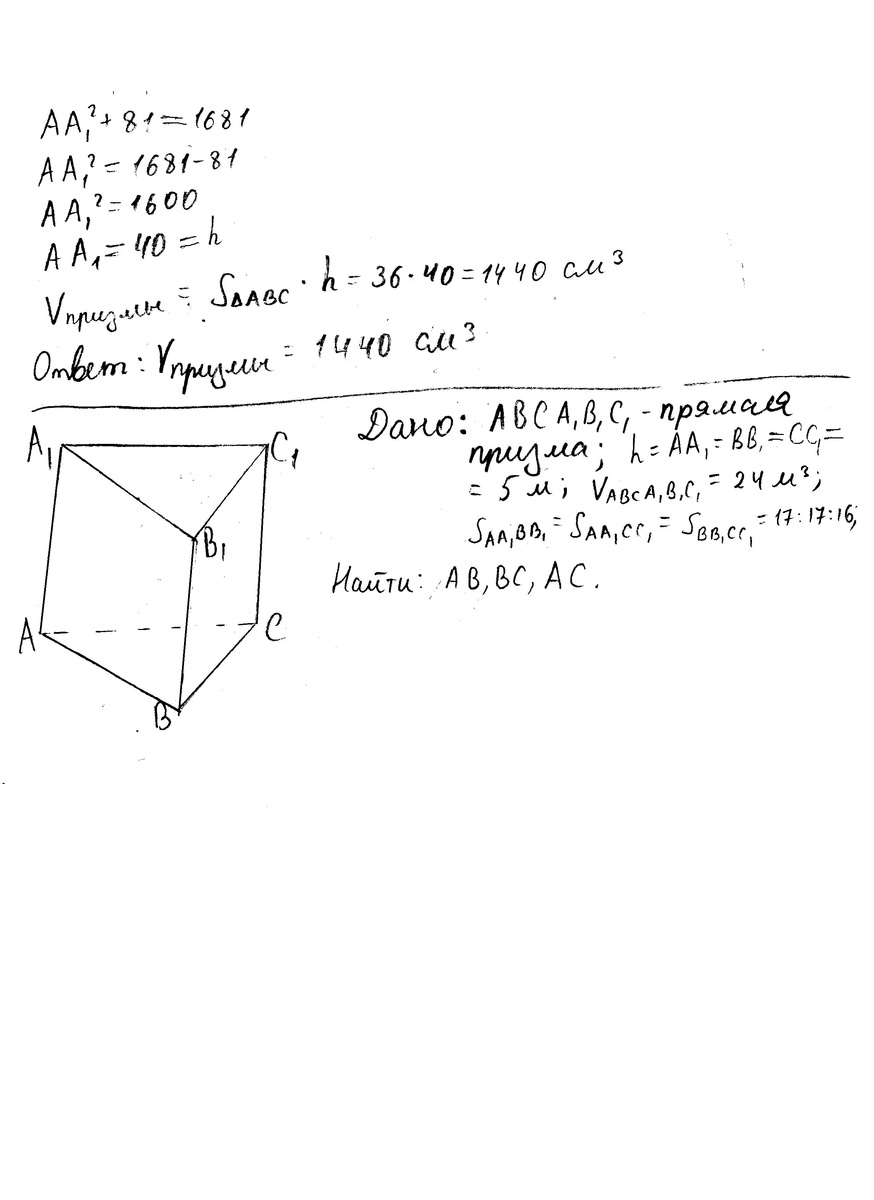 AA₁² + 81 = 1681
AA₁² = 1681 - 81
AA₁² = 1600
AA₁ = 40 = h
Vпризмы = S∆ABC · h = 36 · 40 = 1440 см³
Ответ: Vпризмы = 1440 см³
Дано: ABCA₁B₁C₁ - прямая
призма; h = AA₁ = BB₁ = CC₁ =
= 5 м; VABCA₁B₁C₁ = 24 м³;
SAA₁BB₁ = SAA₁CC₁ = SBB₁CC₁ = 17:17:16;
Найти: AB, BC, AC.
A₁
C₁
B₁
A
C
B